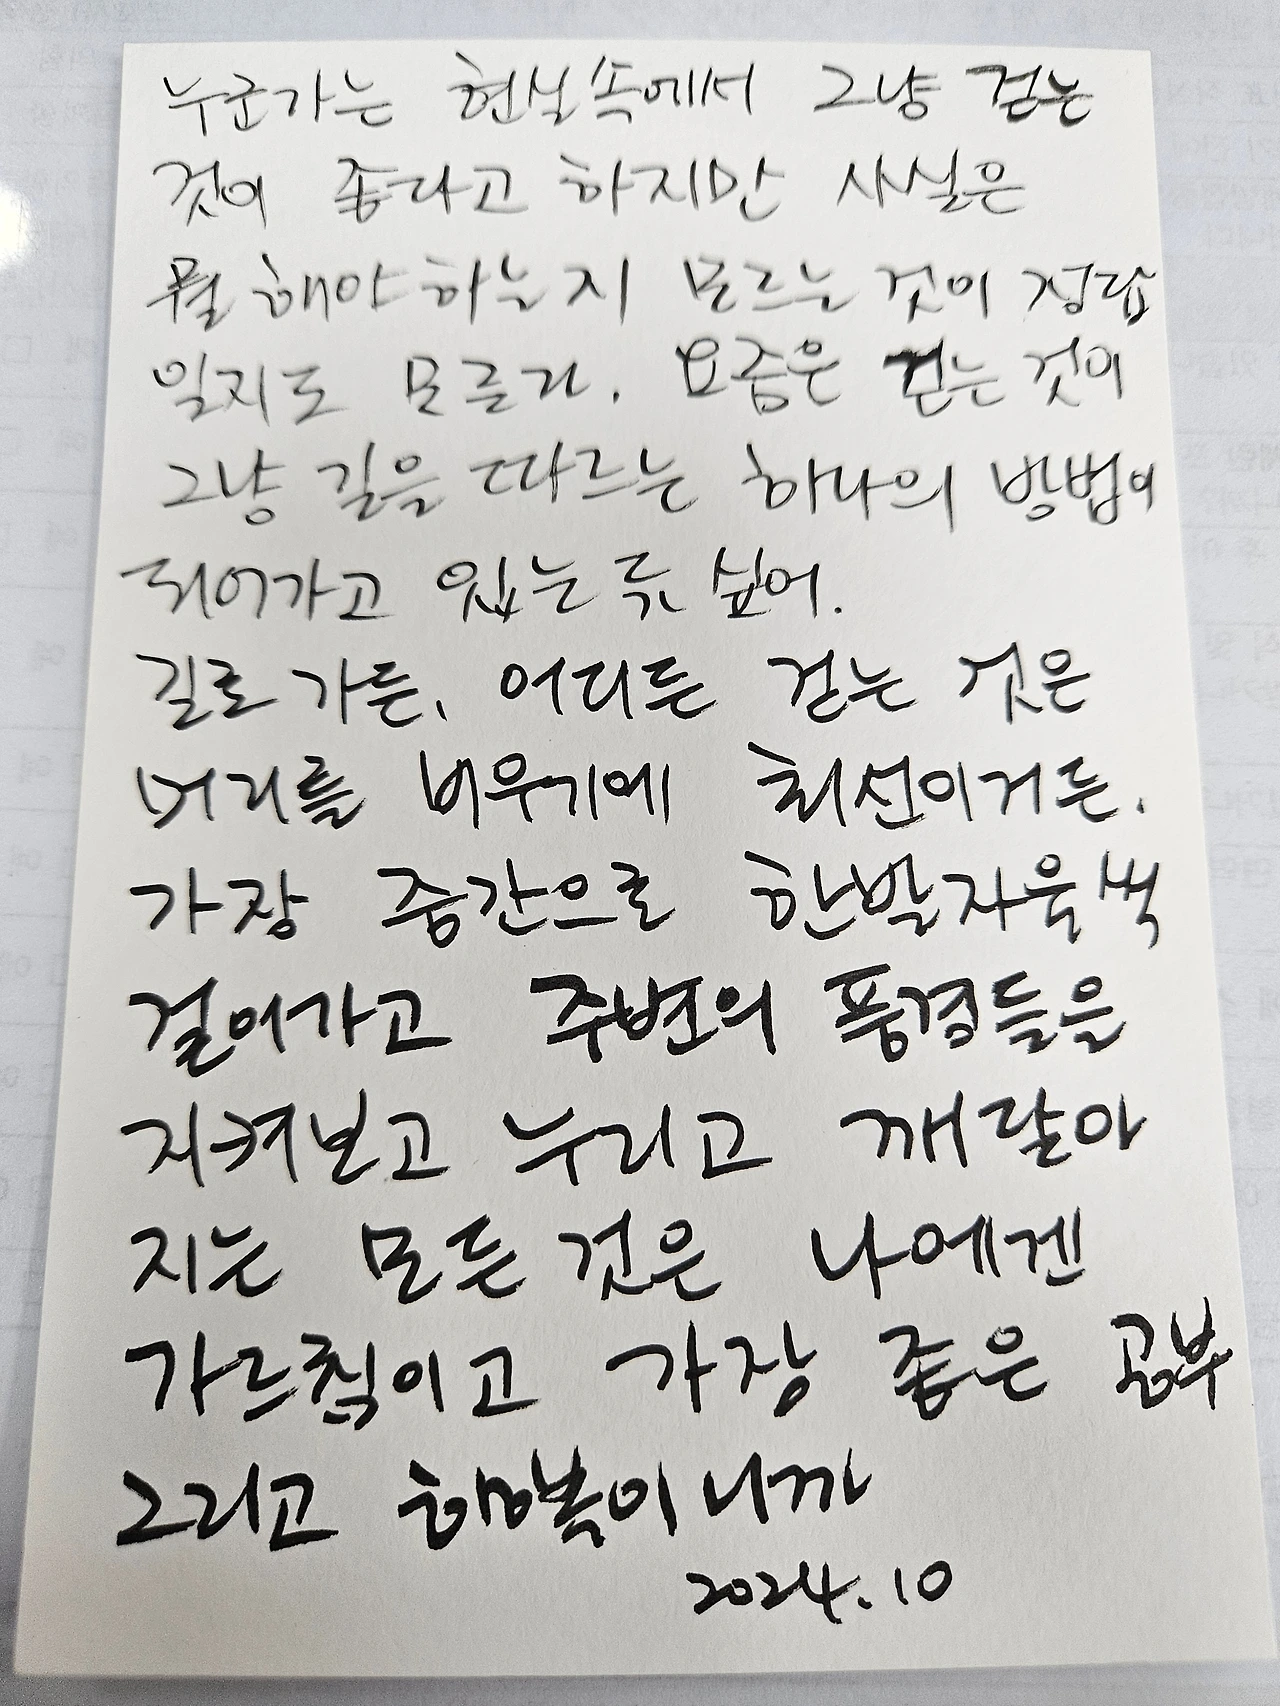 누군가는 현실속에서 그냥 걷는
것이 좋다고 하지만 사실은
뭘 해야 하는지 모르는 것이 정답
일지도 모른다. 요즘은 걷는 것이
그냥 길을 따르는 하나의 방법이
되어가고 있는 듯 싶어.
길로 가든, 어디든 걷는 것은
머리를 비우기에 최선이거든.
가장 중간으로 한발자욱씩
걸어가고 주변의 풍경들을
지켜보고 누리고 깨달아
지는 모든 것은 나에겐
가르침이고 가장 좋은 공부
그리고 행복이니까
2024.10